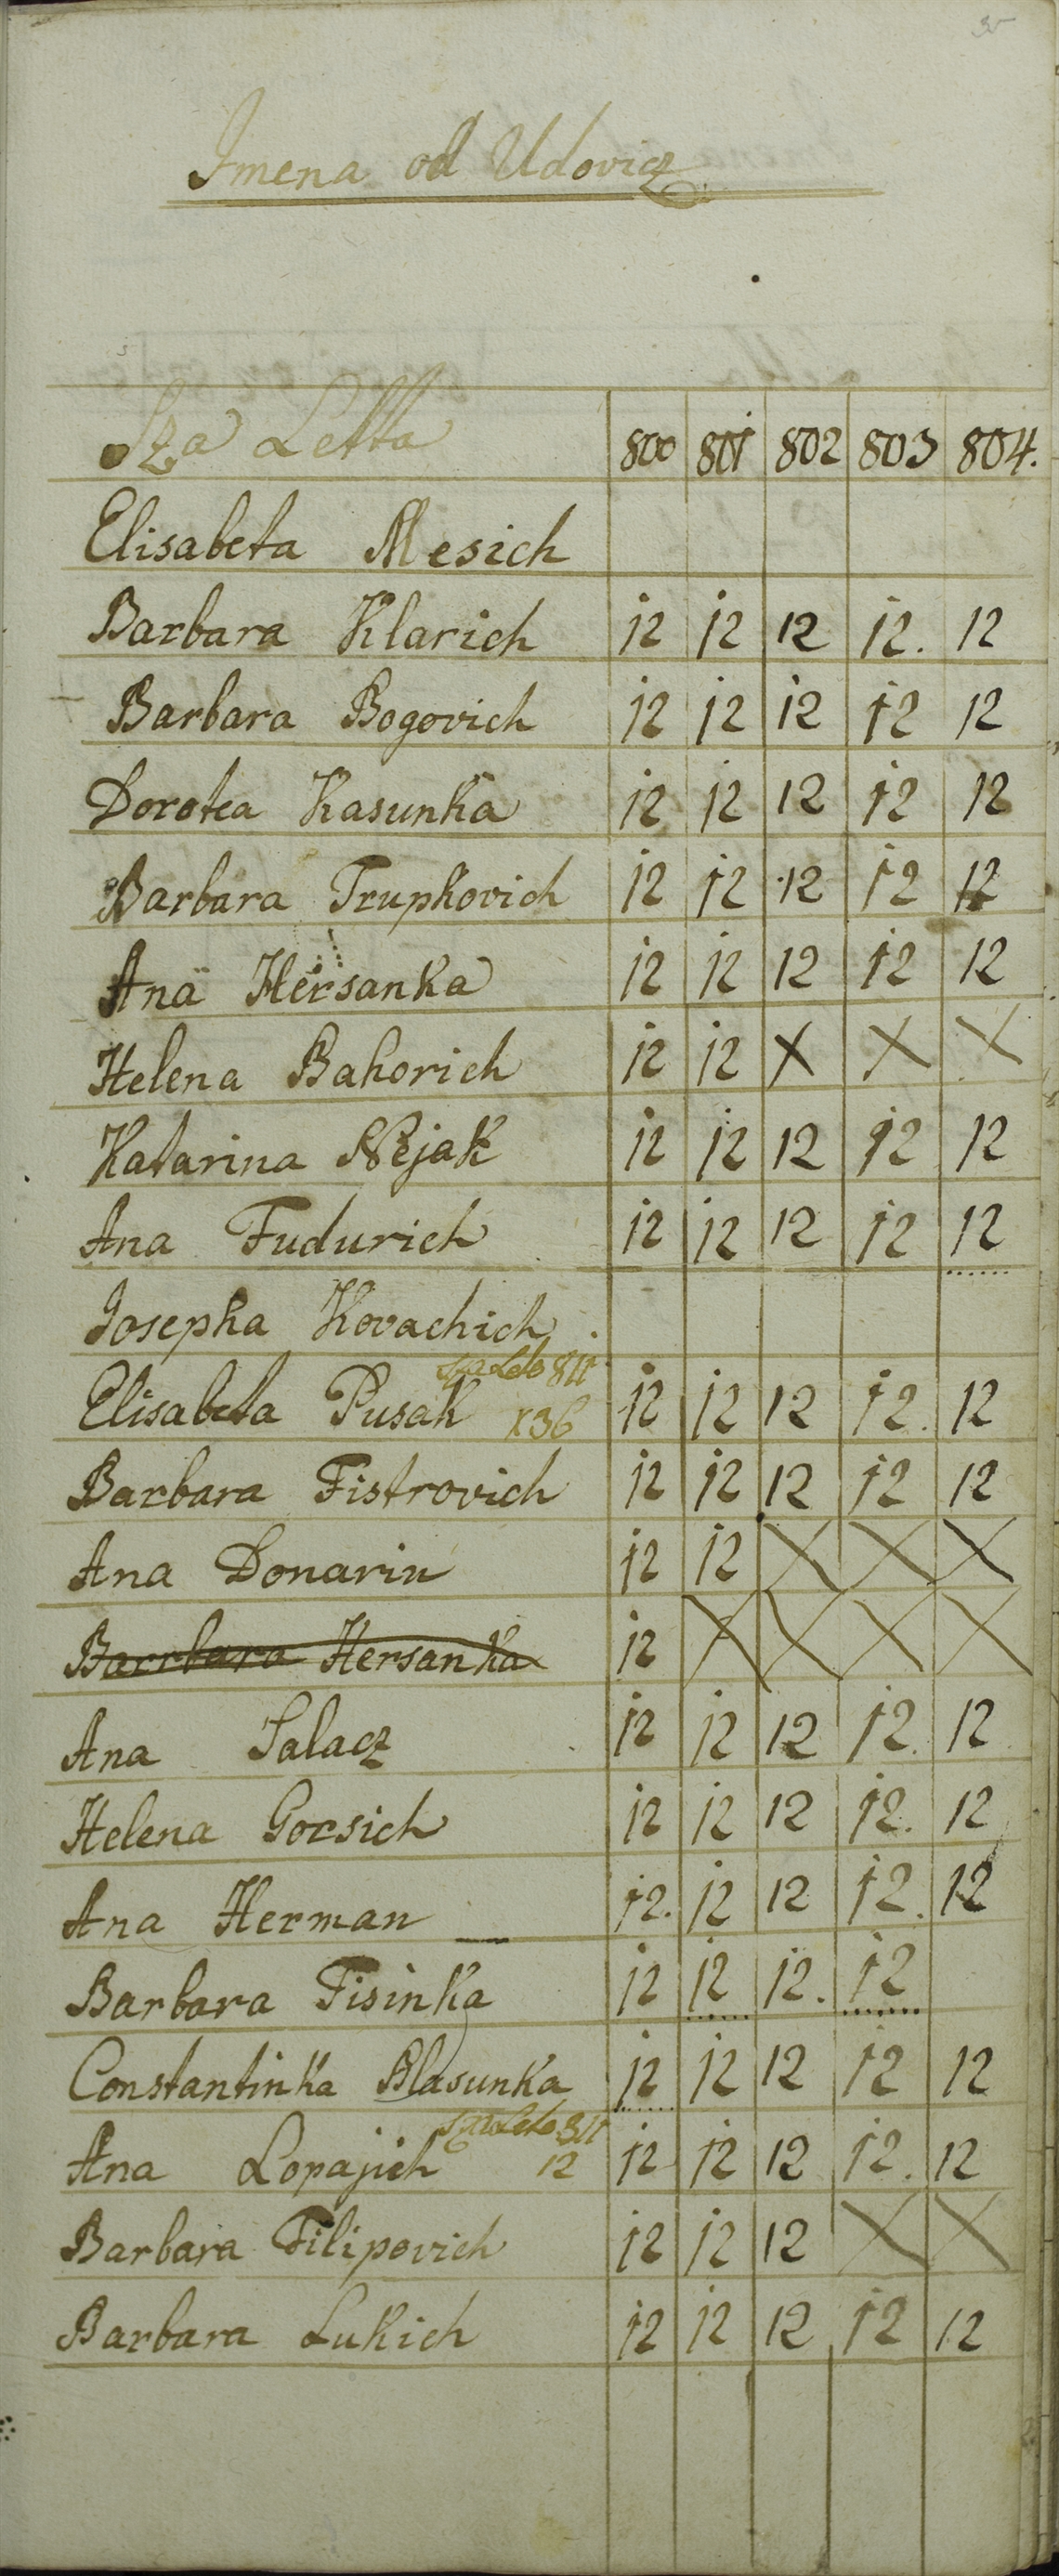 Imena od Udovicz
Sza Letta 800 801 802 803 804.
Elisabeta Mesich
Barbara Klarich 12 12 12 12. 12
Barbara Bogovich 12 12 12 12 12
Dorotea Kasunka 12 12 12 12 12
Barbara Trupkovich 12 12 12 12 12
Ana Hersanka 12 12 12 12 12
Helena Bahorich 12 12 X X X
Katarina Nejak 12 12 12 12 12
Ana Fudurich 12 12 12 12 12
Josepha Kovachich
sza Leto 811
Elisabeta Pusak x36 12 12 12 12. 12
Barbara Fistrovich 12 12 12 12 12
Ana Donarin 12 12 X X X
Barrbara Hersanka 12 X X X X
Ana Salacz 12 12 12 12. 12
Helena Gorsich 12 12 12 12. 12
Ana Herman 12. 12 12 12. 12
Barbara Fisinka 12 12 12. 12
Constantinka Blasunka 12 12 12 12 12
sza Leto 811
Ana Lopajich 12 12 12 12 12. 12
Barbara Filipovich 12 12 12 X X
Barbara Lukich 12 12 12 12 12